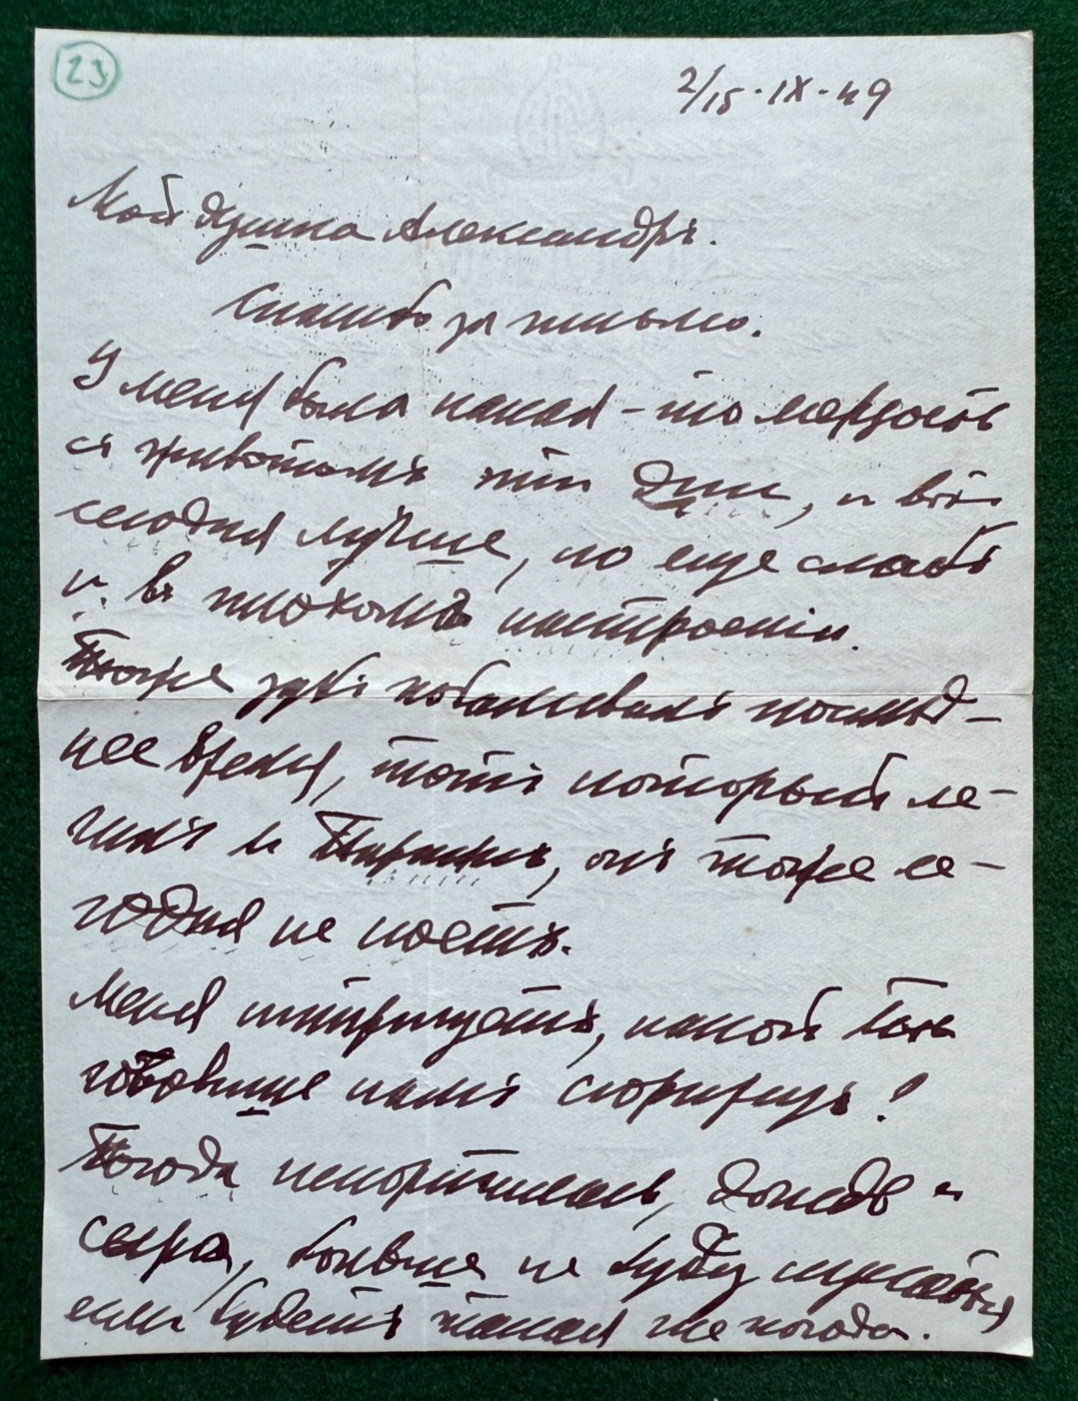 23
2/15·IX·49
Мой душка Александръ.
Спасибо за письмо.
У меня была какая-то мерзость
съ животомъ эти дни, и
сегодня лучше, но еще слабъ
и въ плохомъ настроенiи.
Тоже зубъ побаливалъ послѣд-
нее время, тотъ который ле-
чилъ и Парижъ, онъ тоже се-
годня не ноетъ.
Меня интригуетъ, какой
готовише намъ сюрпризъ!
Погода испортилась, дождь и
сыро, больше не буду купаться
если будетъ такая же погода.